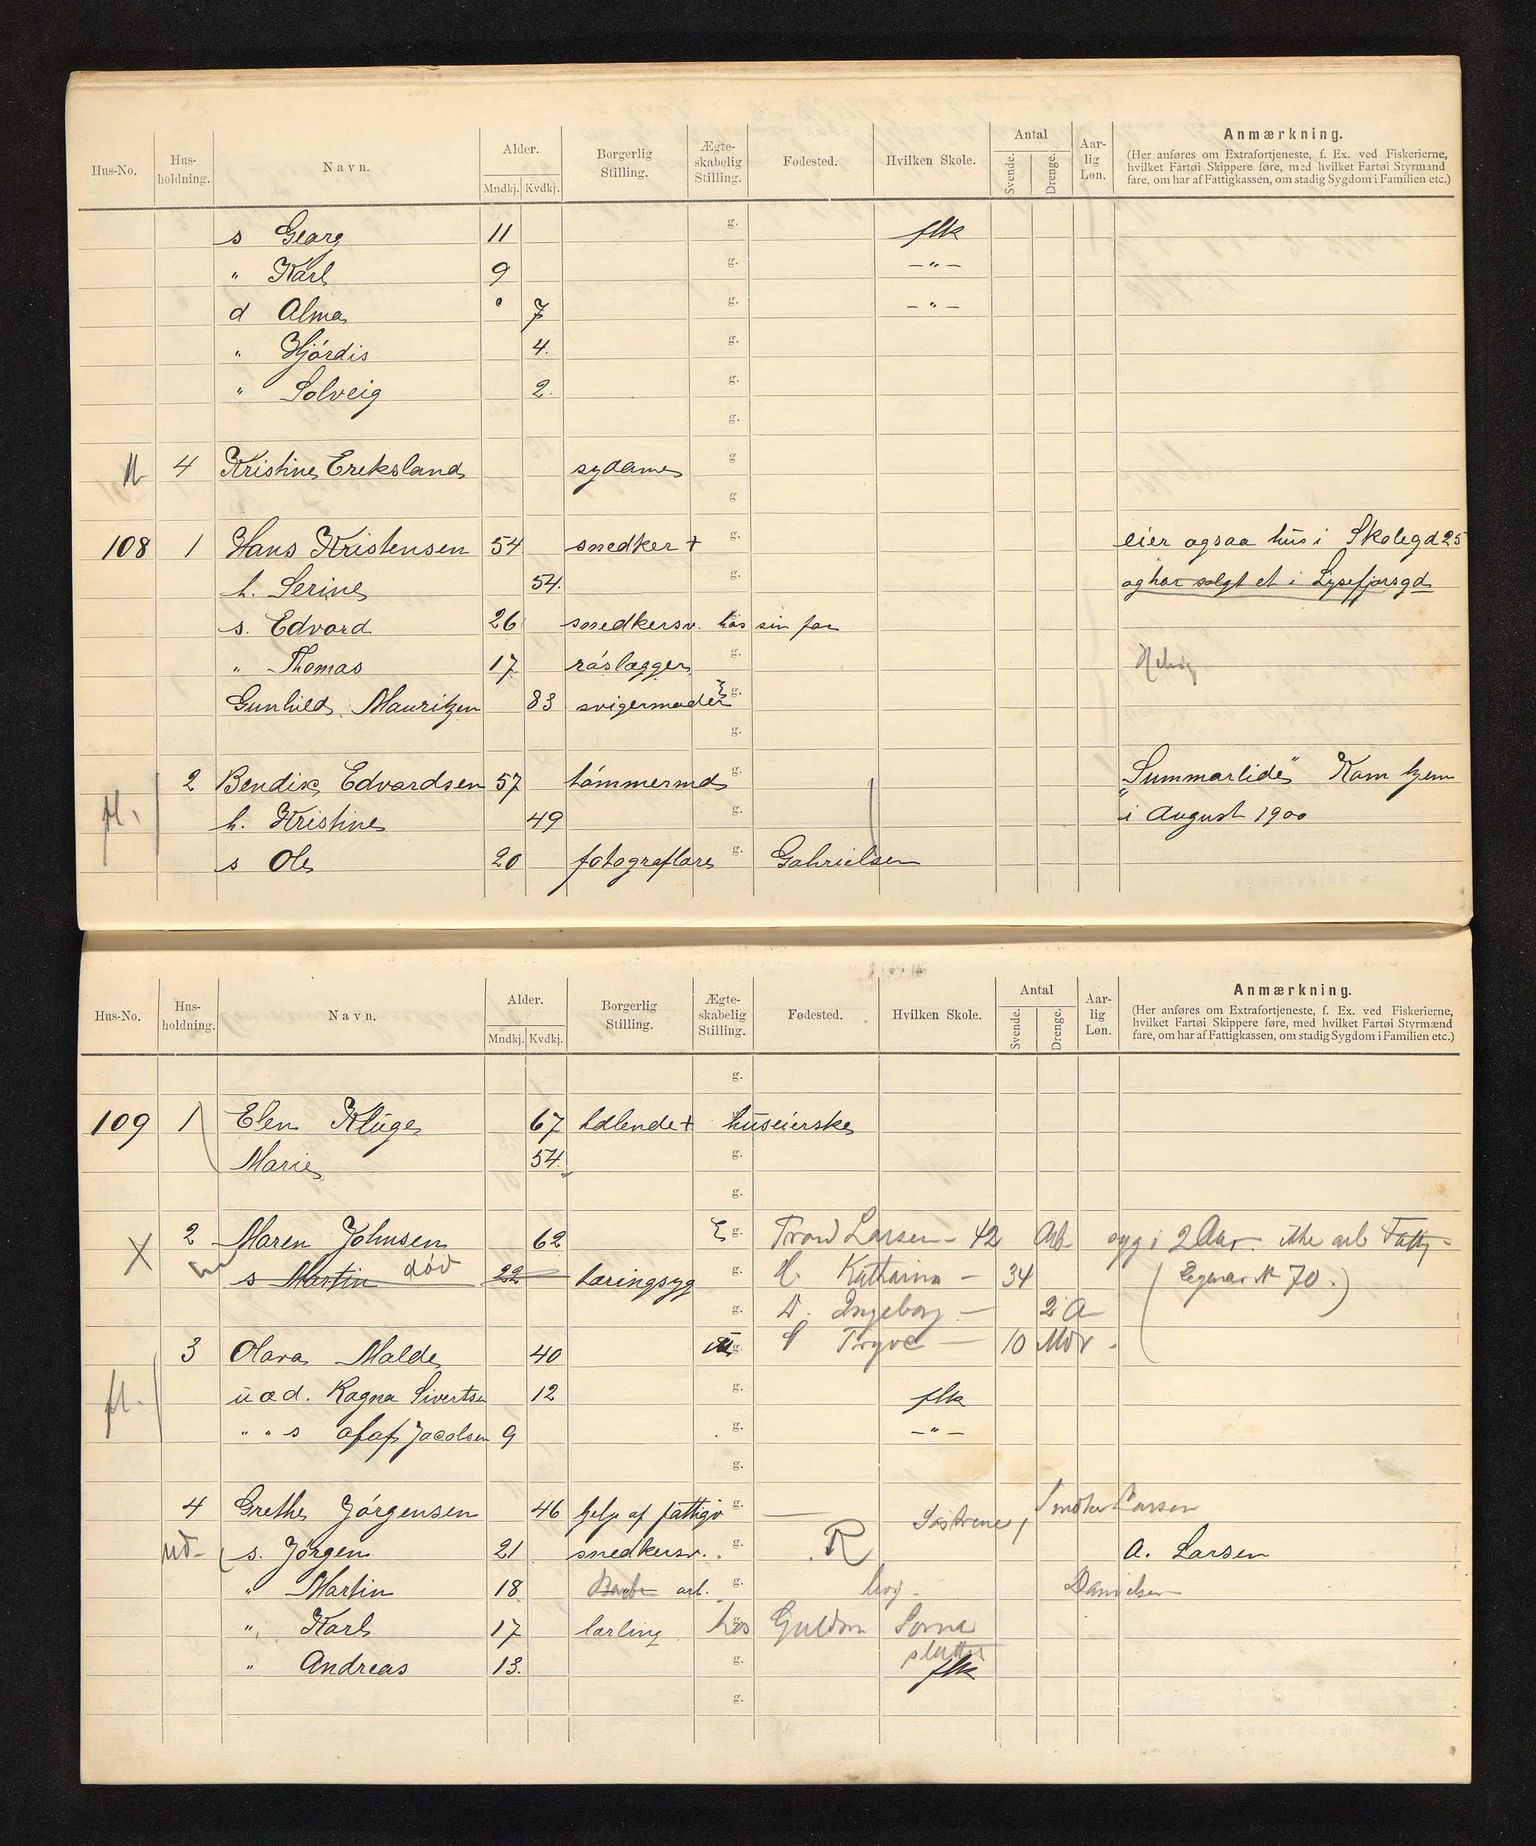 Hus-No. Hus-holdning. Navn. Alder. Mndkj. Kvdkj. Borgerlig Stilling. Ægte-skabelig Stilling. Fødested. Hvilken Skole. Antal Svende. Drenge. Aar-lig Løn. Anmærkning.
(Her anføres om Extrafortjeneste, f. Ex. ved Fiskerierne, hvilket Fartøi Skippere føre, med hvilket Fartøi Styrmænd fare, om har af Fattigkassen, om stadig Sygdom i Familien etc.)
s Georg 11 g. flk
" Karl 9 g. —"—
d Alma 7 g. —"—
" Hjördis 4. g.
" Solveig 2. g.
g.
fl. 4 Kristine Ereksland sydame g
g
108 1 Hans Kristensen 54 snedker + g. eier ogsaa hus i Skolegd 25
h. Serine 54. g. og har solgt et i Lysefjorsgd
s. Edvard 26 snedkersv. hos sin far
" Thomas 17 g.
Gunhild Mauritzen 83 svigermoder E g.
g.
2 Bendix Edvardsen 57 tömmermd g. "Summarlide" Kom hjem
fl. h. Kristine 49 g. i August 1900
s Ole 20 fotograflære g. Gabrielsen
Hus-No. Hus-holdning. Navn. Alder. Mndkj. Kvdkj. Borgerlig Stilling. Ægte-skabelig Stilling. Fødested. Hvilken Skole. Antal Svende. Drenge. Aar-lig Løn. Anmærkning.
(Her anføres om Extrafortjeneste, f. Ex. ved Fiskerierne, hvilket Fartøi Skippere føre, med hvilket Fartøi Styrmænd fare, om har af Fattigkassen, om stadig Sygdom i Familien etc.)
g.
109 1 Elen Kluge 67 hdlende + huseierske
Marie 54. g.
g.
X 2 Maren Johnsen 62 E g. Trond Larsen - 42 Arb syg i 2 Aar.
s Martin död 22 tæringsyg g. H. Katharina — 34 70.)
g. D. Ingeborg — 2 A
3 Olava Malde 40 g. S Trygve — 10 Mdr.
fl. u æ d. Ragna Sivertsen 12 g. flk
" " s Olaf Jacobsen 9 g. —"—
g.
4 Grethe Jörgensen 46 hjelp af fattigv g. — Larsen
ud- s. Jörgen 21 snedkersv. g. R A. Larsen
" Martin 18 arb. g. Danielsen
" Karl 17 lærling hos g. Guldsm
slutter
" Andreas 13. g. flk
g.